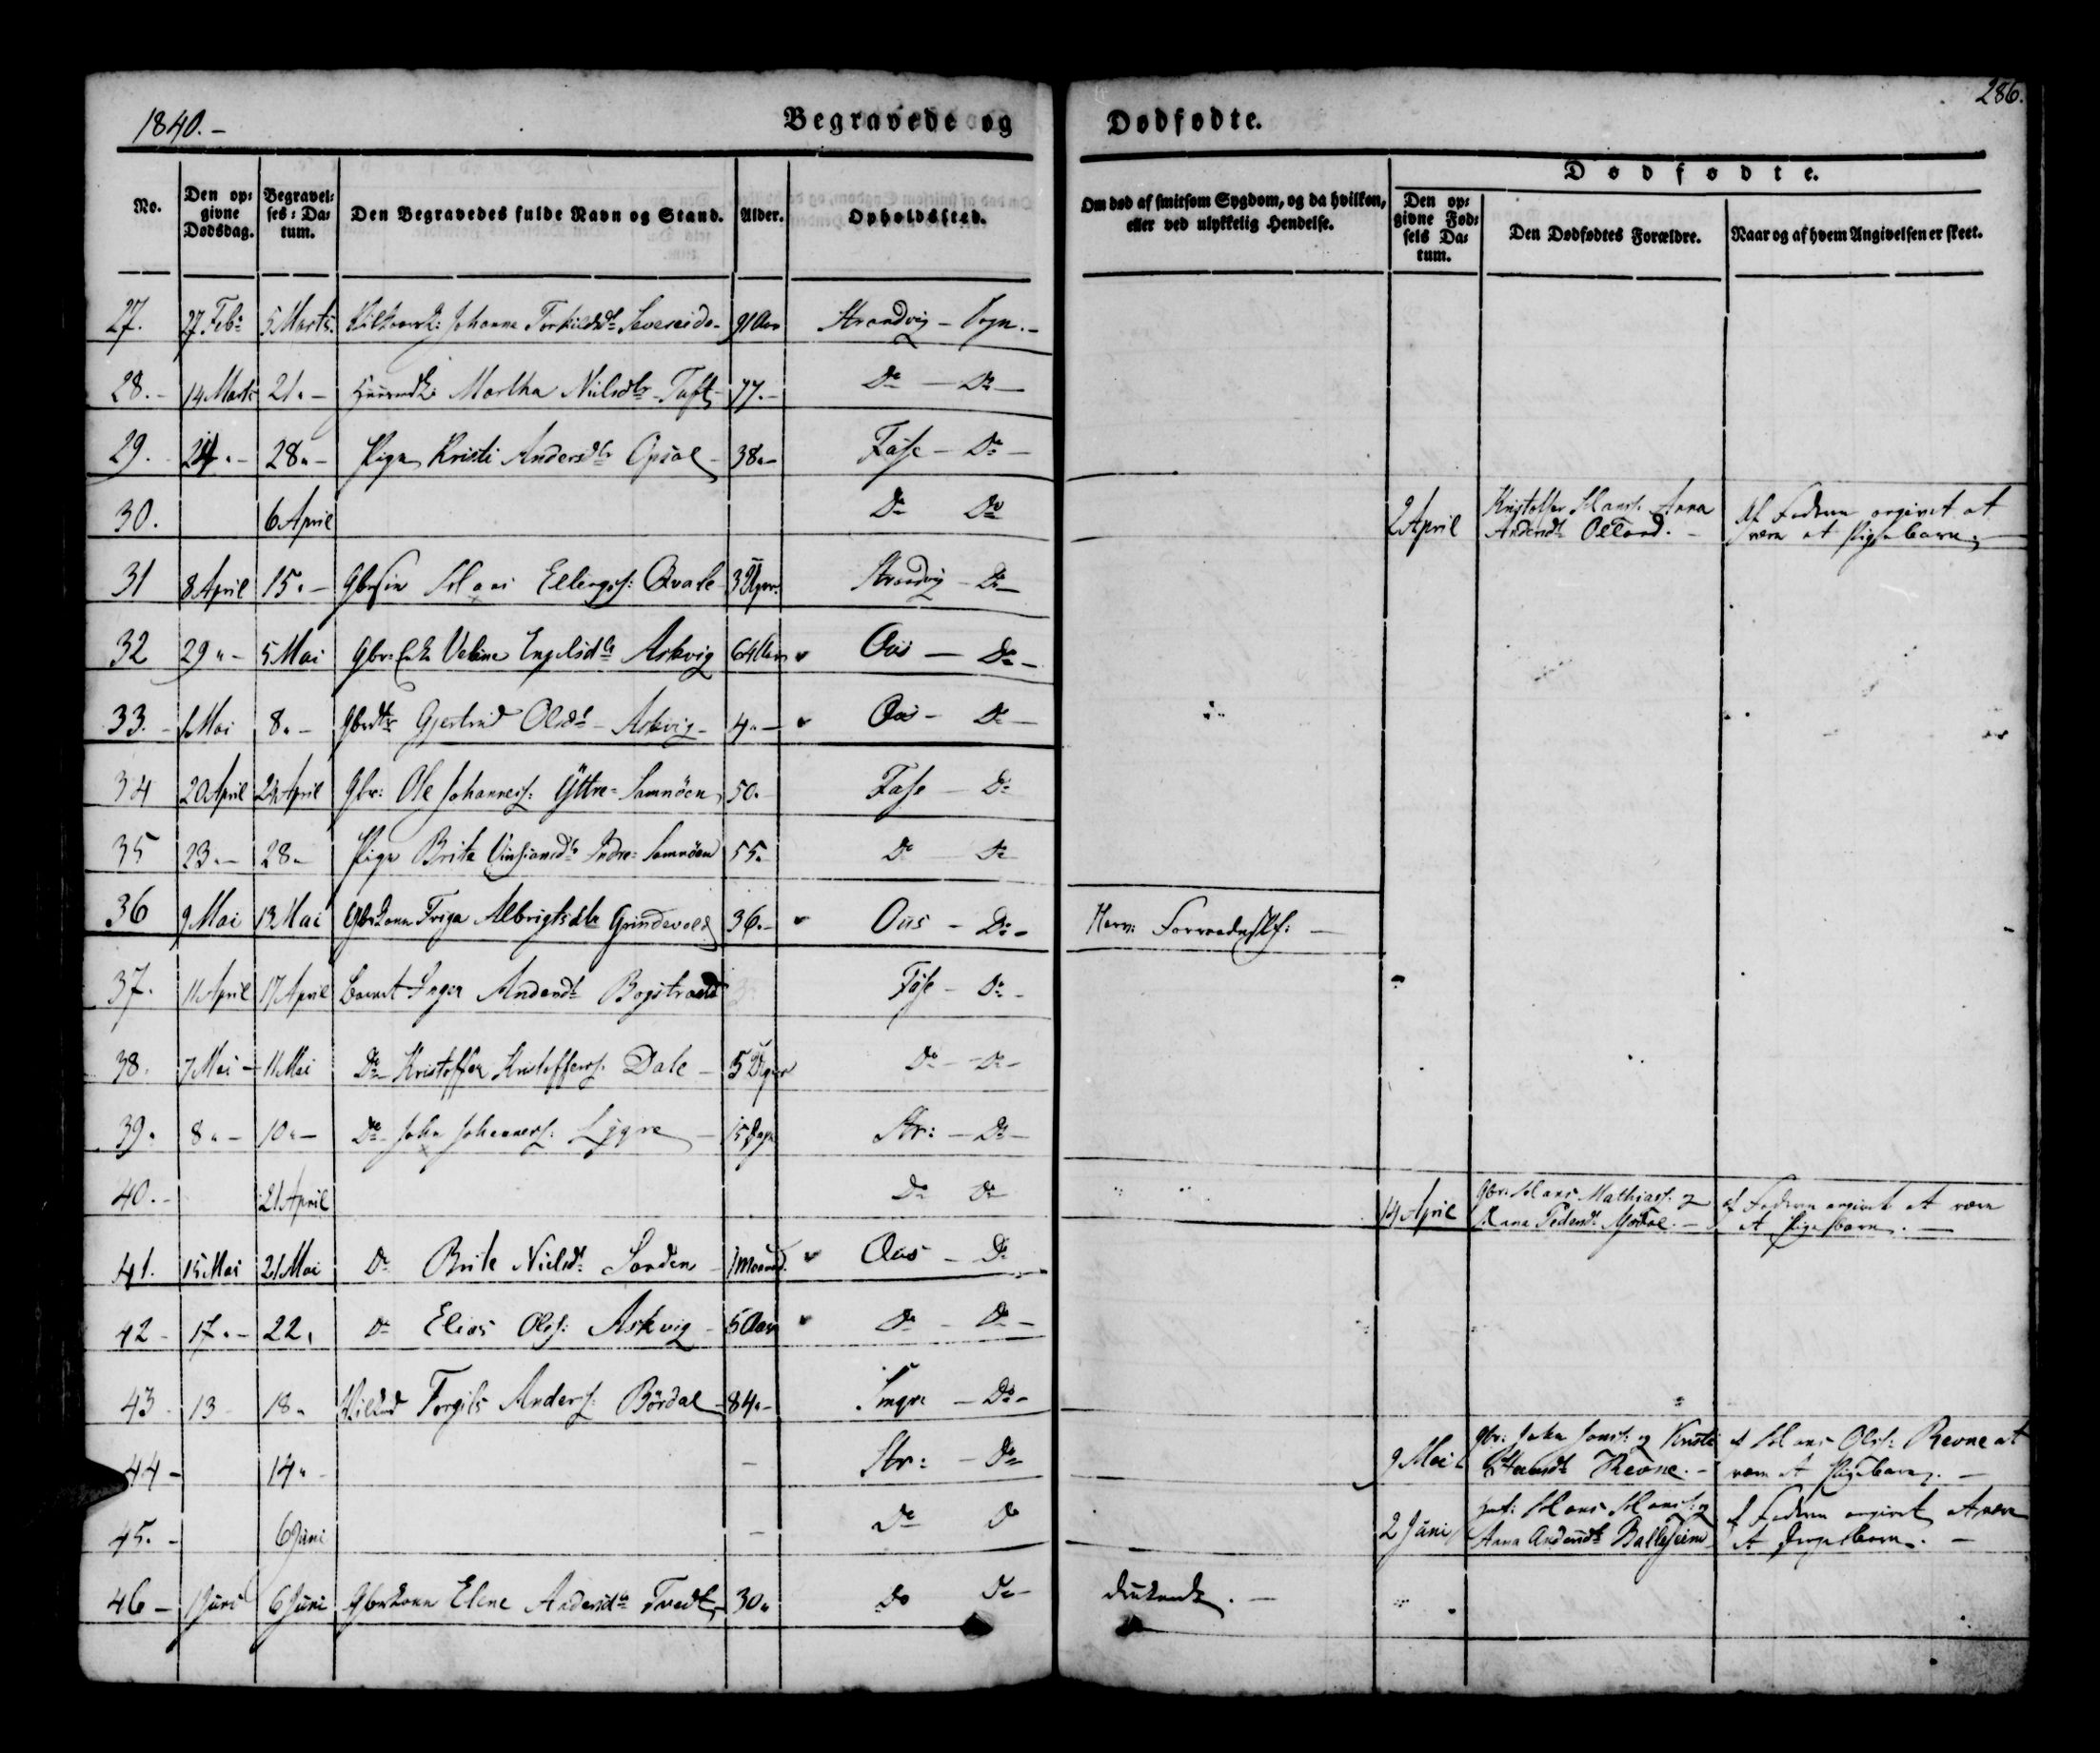 1840.-
Begravede og
Dødfødte.
286.
No.
Den op-
givne
Dødsdag.
Begravel-
ses-Da-
tum.
Den Begravedes fulde Navn og Stand.
Alder.
Opholdssted.
Om død af smitsom Sygdom, og da hvilken,
eller ved ulykkelig Hendelse.
Dødfødte.
Den op-
givne Fød-
sels Da-
tum.
Den Dødfødtes Forældre.
Naar og af hvem Angivelsen er skeet.
27. 27 Feb: 5 Marts. Johanna Torkildsdt Sævereide- 91 Aar Strandvig - Sogn.-
28.- 14 Marts 21.- Martha Nielsdtr Tuft 77.- Do - Do -
29. 24.- 28.- Pige Kristi Andersdtr Opsal 38.- Fuse - Do -
30. 6 April Do Do 2 April Kristoffer Hans: Anna
Andersdt Økland.- Af Faderen angivet at
være et Pigebarn.-
31 8 April 15.- Hans Ellingss: Qvale 3 Uger. Strandvig - Do -
32 29.- 5 Mai Gbr: Enke Engelsdtr Askvig 64 Aar Ous - Do -
33.- 1 Mai 8.- Gbrdtr Gjertrud Olsdt - Askvig - 4.- Ous - Do -
34 20 April 24 April Gbr: Ole Johanness: Yttre-Samnøen 50.- Fuse - Do
35 23.- 28.- Pige Brita Indre-Samnøen 55. Do Do
36 9 Mai 13 Mai Gbrkone Albrigtsdtr Grindevold 36.- Ous - Do - -
37. 11 April 17 April Barnet Inger Andersdt Fuse - Do -
38. 7 Mai - 11 Mai Do Kristoffer Kristoffers: Dale - 5 Uger Do - Do -
39. 8.- 10.- Do John Johanness: Lygre - 15 Dage Str: - Do -
40.- 21 April Do Do 14 April Gbr: Hans Mathiass: og
Pedersdt - af Faderen angivet at være
et Pigebarn.-
41. 15 Mai 21 Mai Do Brite Nielsdt Sanden - 1 Maaned. Ous - Do
42 - 17.- 22. Do Elias Ols: Askvig - 5 Aar Do - Do -
43 - 13 - 18. Torgils Anders: Børdal - 84.- - Do -
44 - 14.- - Str: - Do 9 Mai Gbr: John Jons: og Kristi
Revne.- af Hans Ols: Revne at
være et Pigebarn.-
45.- 6 Juni - Do Do 2 Juni Hans Hans: og
Anna Andersdt Balleseim af Faderen angivet at være
et Drengebarn.-
46 - 1 Juni 6 Juni Gbrkone Eline Andersdtr Tvedt 30. Do Do - druknet.-